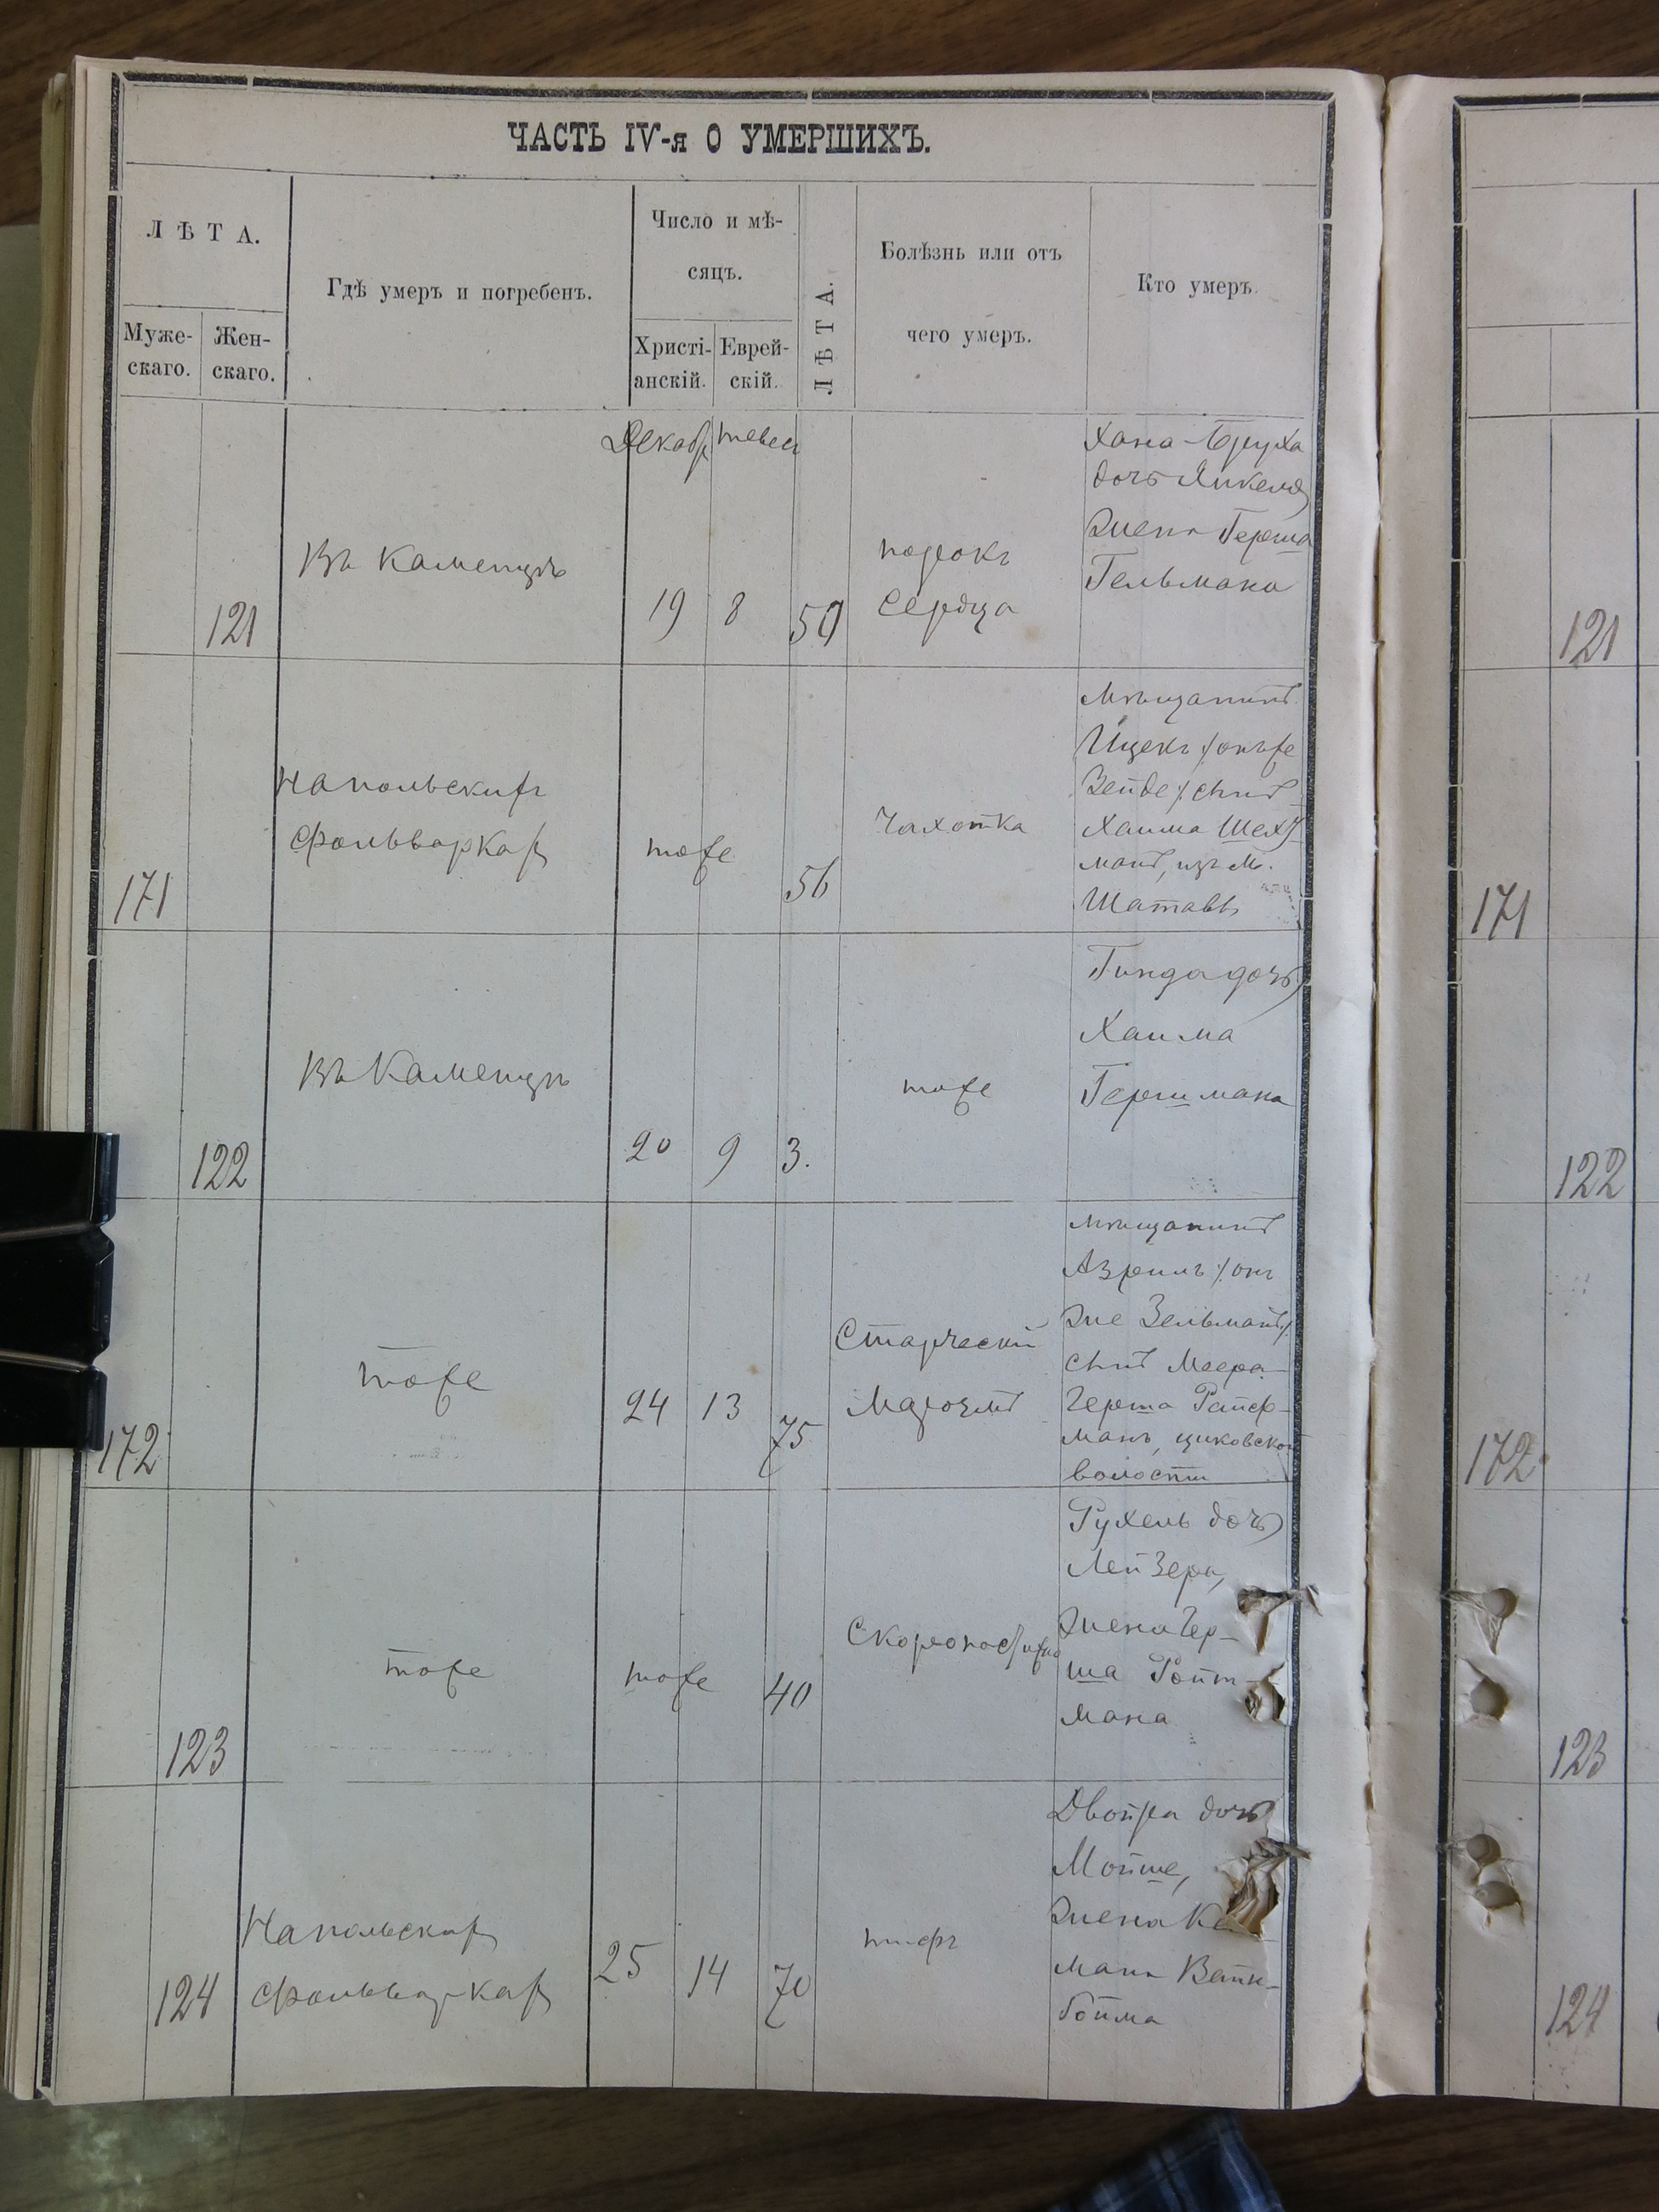 ЧАСТЬ IV-я О УМЕРШИХЪ.
ЛѢТА.
Муже-
скаго.
Жен-
скаго.
Гдѣ умеръ и погребенъ.
Число и мѣ-
сяцъ.
Христі-
анскій.
Еврей-
скій.
ЛѢТА.
Болѣзнь или отъ
чего умеръ.
Кто умеръ.
121
Въ Каменцѣ
Декабр
тевес
19
8
50
порокъ
сердца
Хана-Бруха
дочь Янкеля
жена Герша
Гельмана
121
171
На польскихъ
фольваркахъ
тоже
56
Чахотка
Мѣщанинъ
Ицекъ /онъ же
Зейде/ сынъ
Хаима Шехт
манъ, изъ м.
Шатавы
171
122
Въ Каменцѣ
20
9
3.
тоже
Гинда дочь
Хаима
Гершмана
122
172
тоже
24
13
75
Старческій
Марозмъ
мѣщанинъ
Азрилъ /онъ
же Зельманъ/
сынъ Меера-
Герша Райф-
манъ, циковской
волости
172
123
тоже
тоже
40
Скоропостижно
Рухель дочь
Лейзера,
жена Гер-
ша Ройт-
мана
123
124
На польских
фольварках
25
14
70
тифъ
Двойра дочь
Мойше,
жена
мана Вайн-
бойма
124